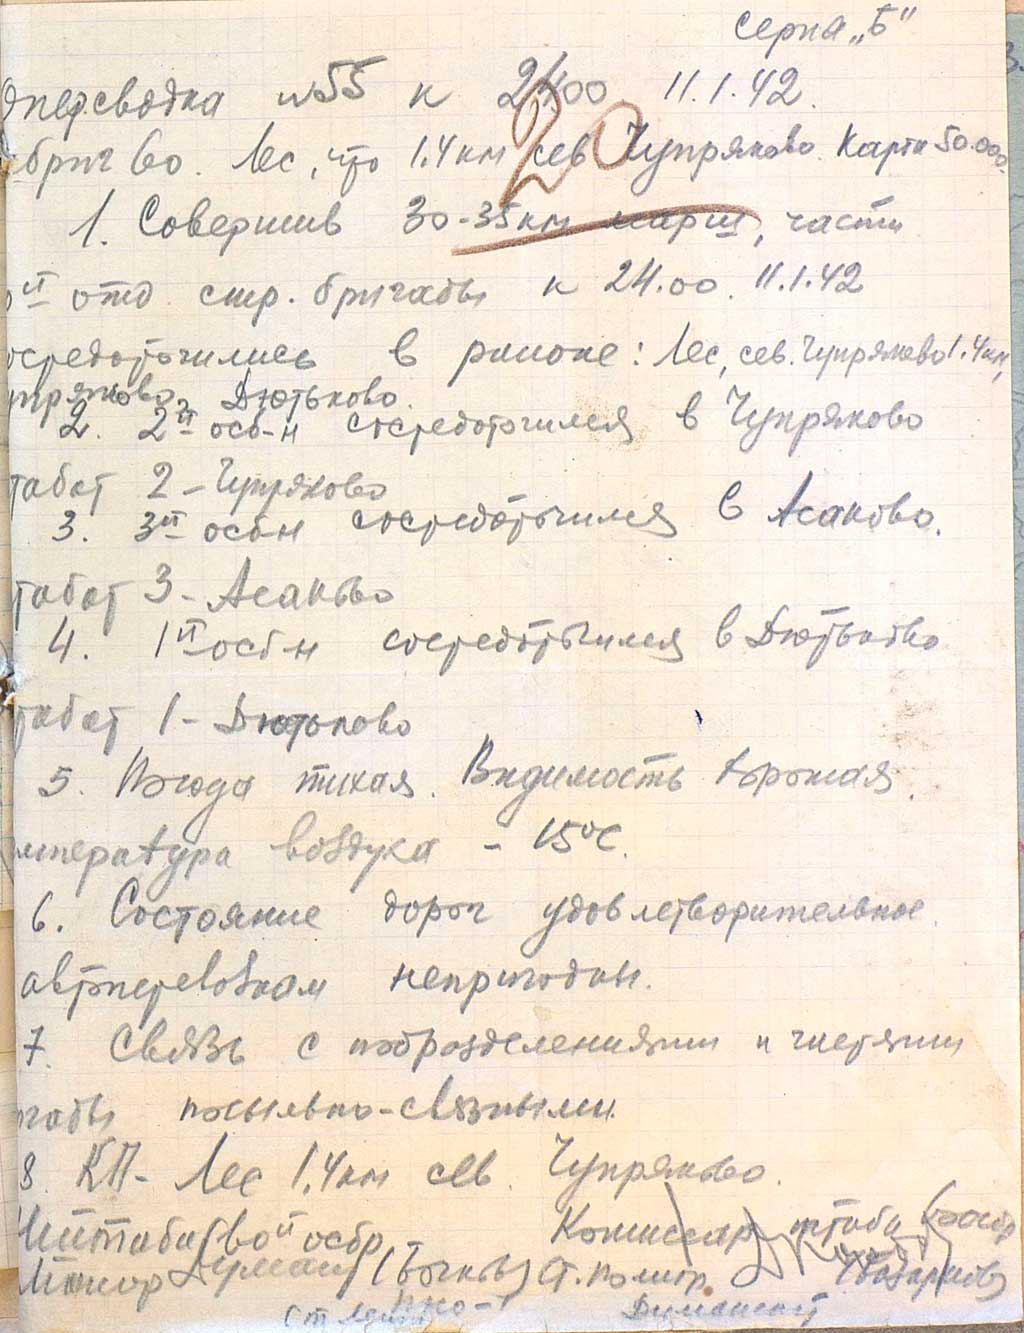 серия „Б"
Оперсводка №55 к 24.00 11.1.42.
бриг 60. Лес, что 1.4 км сев Чупряково. Карта 50.000.
20
1. Совершив 30-35 км марш, части
отд. стр. бригады к 24.00. 11.1.42
осредоточились в районе: Лес, сев. Чупряково 1.4 км,
упряково, Дютьково.
2. 2й осб-н сосредоточился в Чупряково
табат 2 - Чупряково
3. 3й осб-н сосредоточился в Асаково.
табат 3 - Асаково
4. 1й осб-н сосредоточился в Дютьково
табат 1 - Дютьково
5. Погода тихая. Видимость хорошая.
мпература воздуха - 15°С.
6. Состояние дорог удовлетворительное.
автоперевозкам непригодны.
7. Связь с подразделениями и частями
гады посыльно-связными.
8. КП - Лес 1,4 км сев. Чупряково.
Н штаба 60й осбр Комиссар штаба 60 осбр
Майор ст. политр.